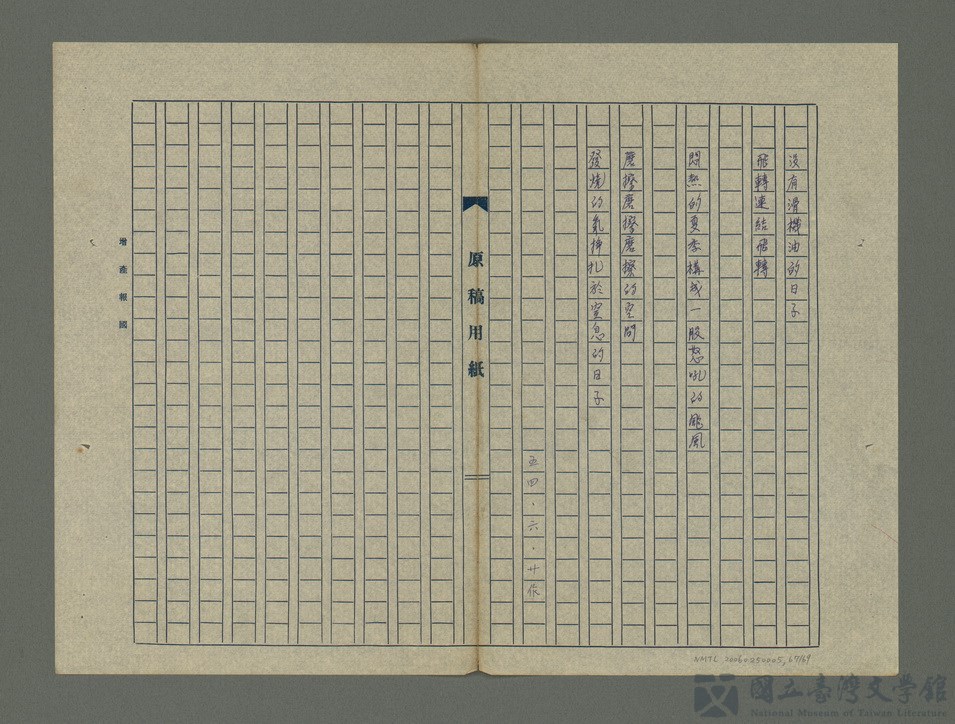 沒有滑機油的日子
飛轉連結飛轉
悶熱的夏季構成一股怒吼的颱風
磨擦磨擦磨擦的空間
發燒的氣掙扎於窒息的日子
五四．六．廿作
原稿用紙
增產報國
NMTL 20060250005, 67/69
國立臺灣文學館
National Museum of Taiwan Literature